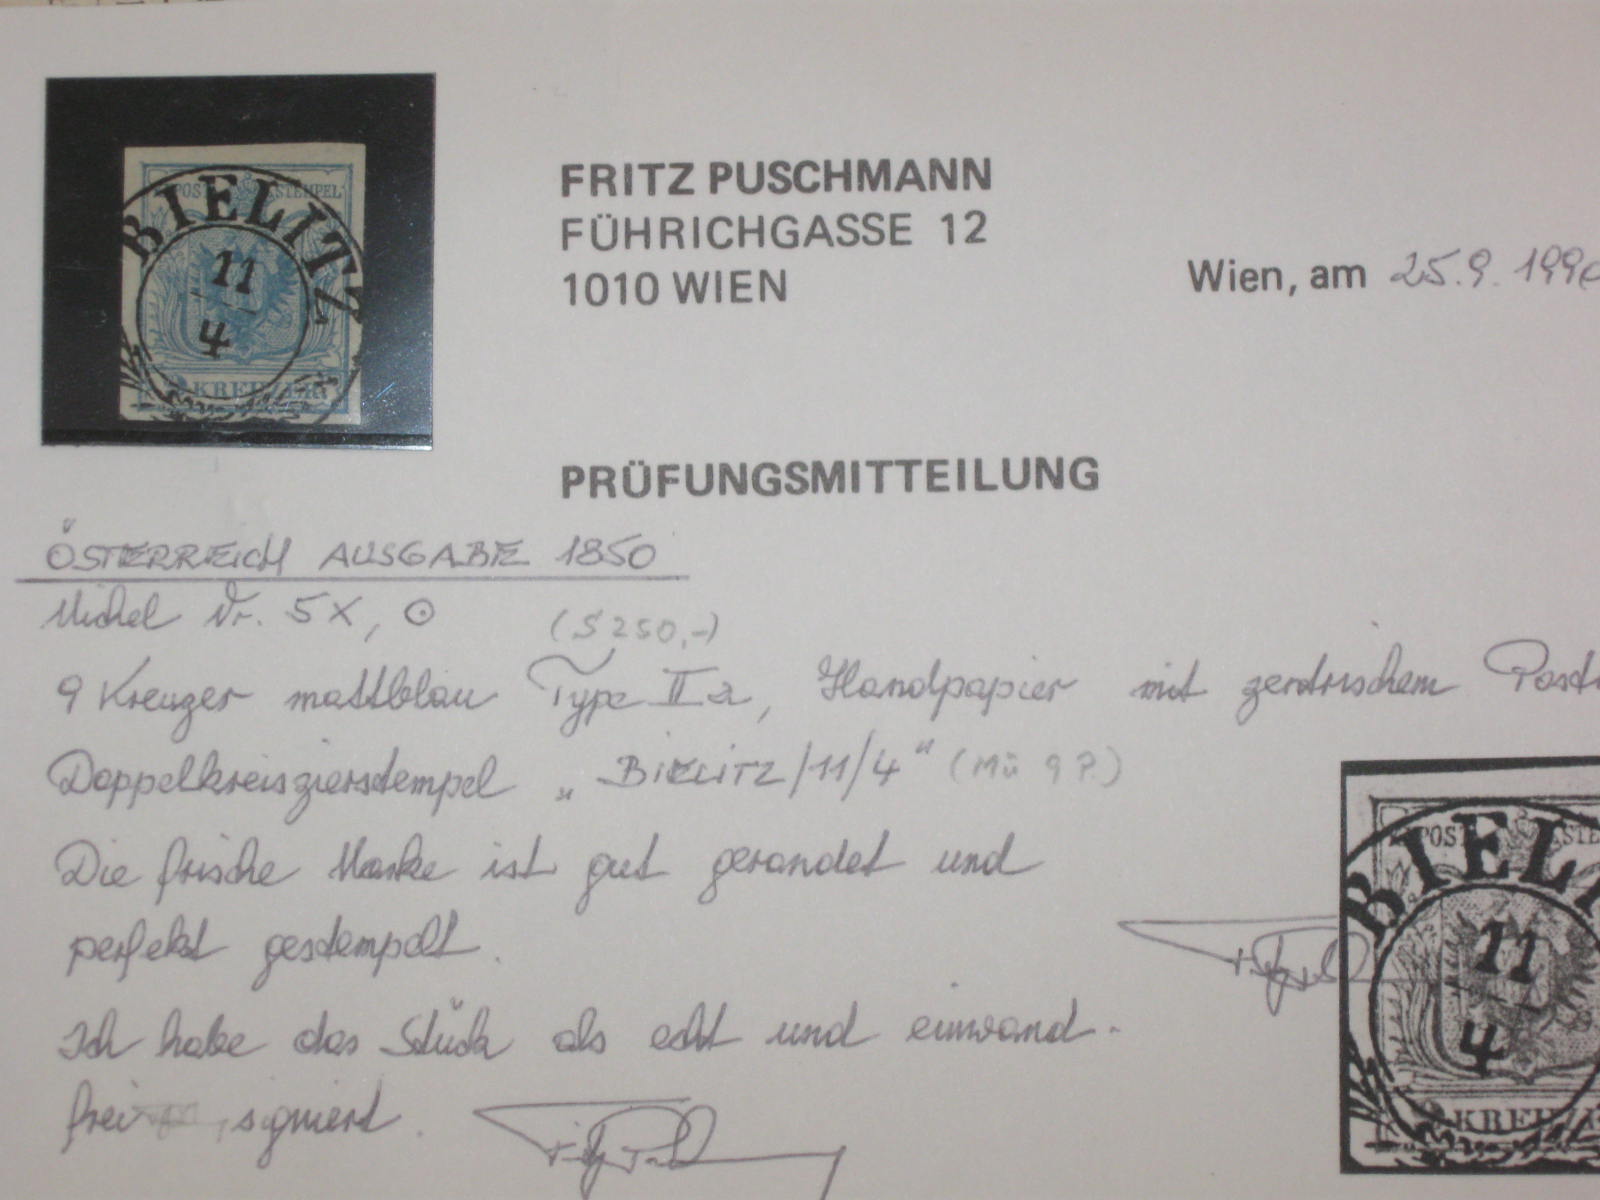 POST STEMPEL
BIELITZ
11
4
9 KREUZER
FRITZ PUSCHMANN
FÜHRICHGASSE 12
1010 WIEN
Wien, am 25.9.199
PRÜFUNGSMITTEILUNG
ÖSTERREICH AUSGABE 1850
Michel Nr. 5X, ⊙ (S 250,-)
9 Kreuzer mattblau Type II a, Handpapier mit zentrischem Post
Doppelkreiszierstempel „BIELITZ/11/4“ (Mü 9 P.)
Die frische Marke ist gut gerandet und
perfekt gestempelt.
Ich habe das Stück als echt und einwand-
frei signiert.
POST STE
BIELI
11
4
9 KREUZE